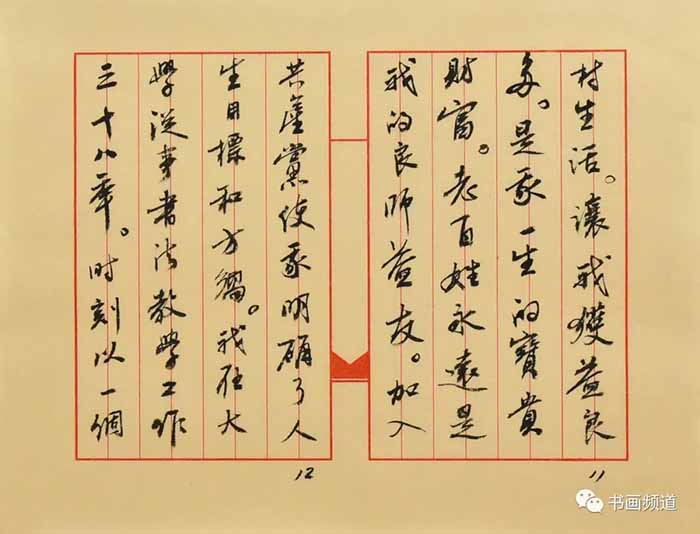 村生活。讓我獲益良
多。是我一生的寶貴
財富。老百姓永遠是
我的良师益友。加入
11
共產黨使我明確了人
生目標和方嚮。我在大
學從事書法教學工作
三十八年。时刻以一個
12
书画频道